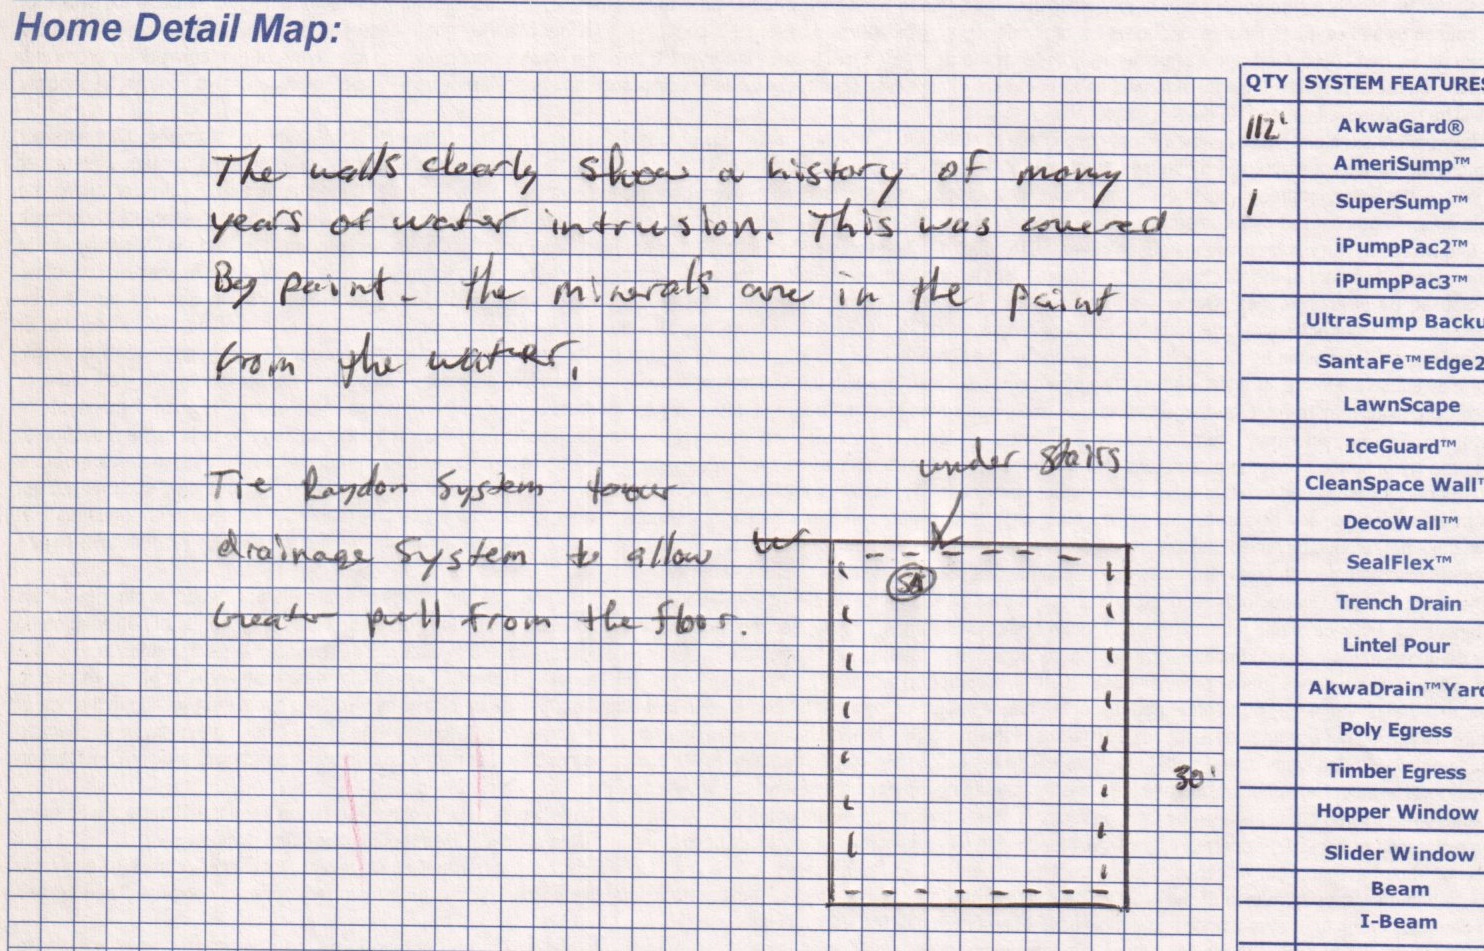 Home Detail Map:
The walls clearly show a history of many
years of water intrusion. This was covered
By paint. the minerals are in the paint
from the water.
under stairs
Tie Raydon System
drainage System to allow
Greater pull from the floor.
30'
QTY SYSTEM FEATURES
112' AkwaGard®
AmeriSump™
1 SuperSump™
iPumpPac2™
iPumpPac3™
UltraSump Backu
SantaFe™Edge2
LawnScape
IceGuard™
CleanSpace Wall™
DecoWall™
SealFlex™
Trench Drain
Lintel Pour
AkwaDrain™Yard
Poly Egress
Timber Egress
Hopper Window
Slider Window
Beam
I-Beam